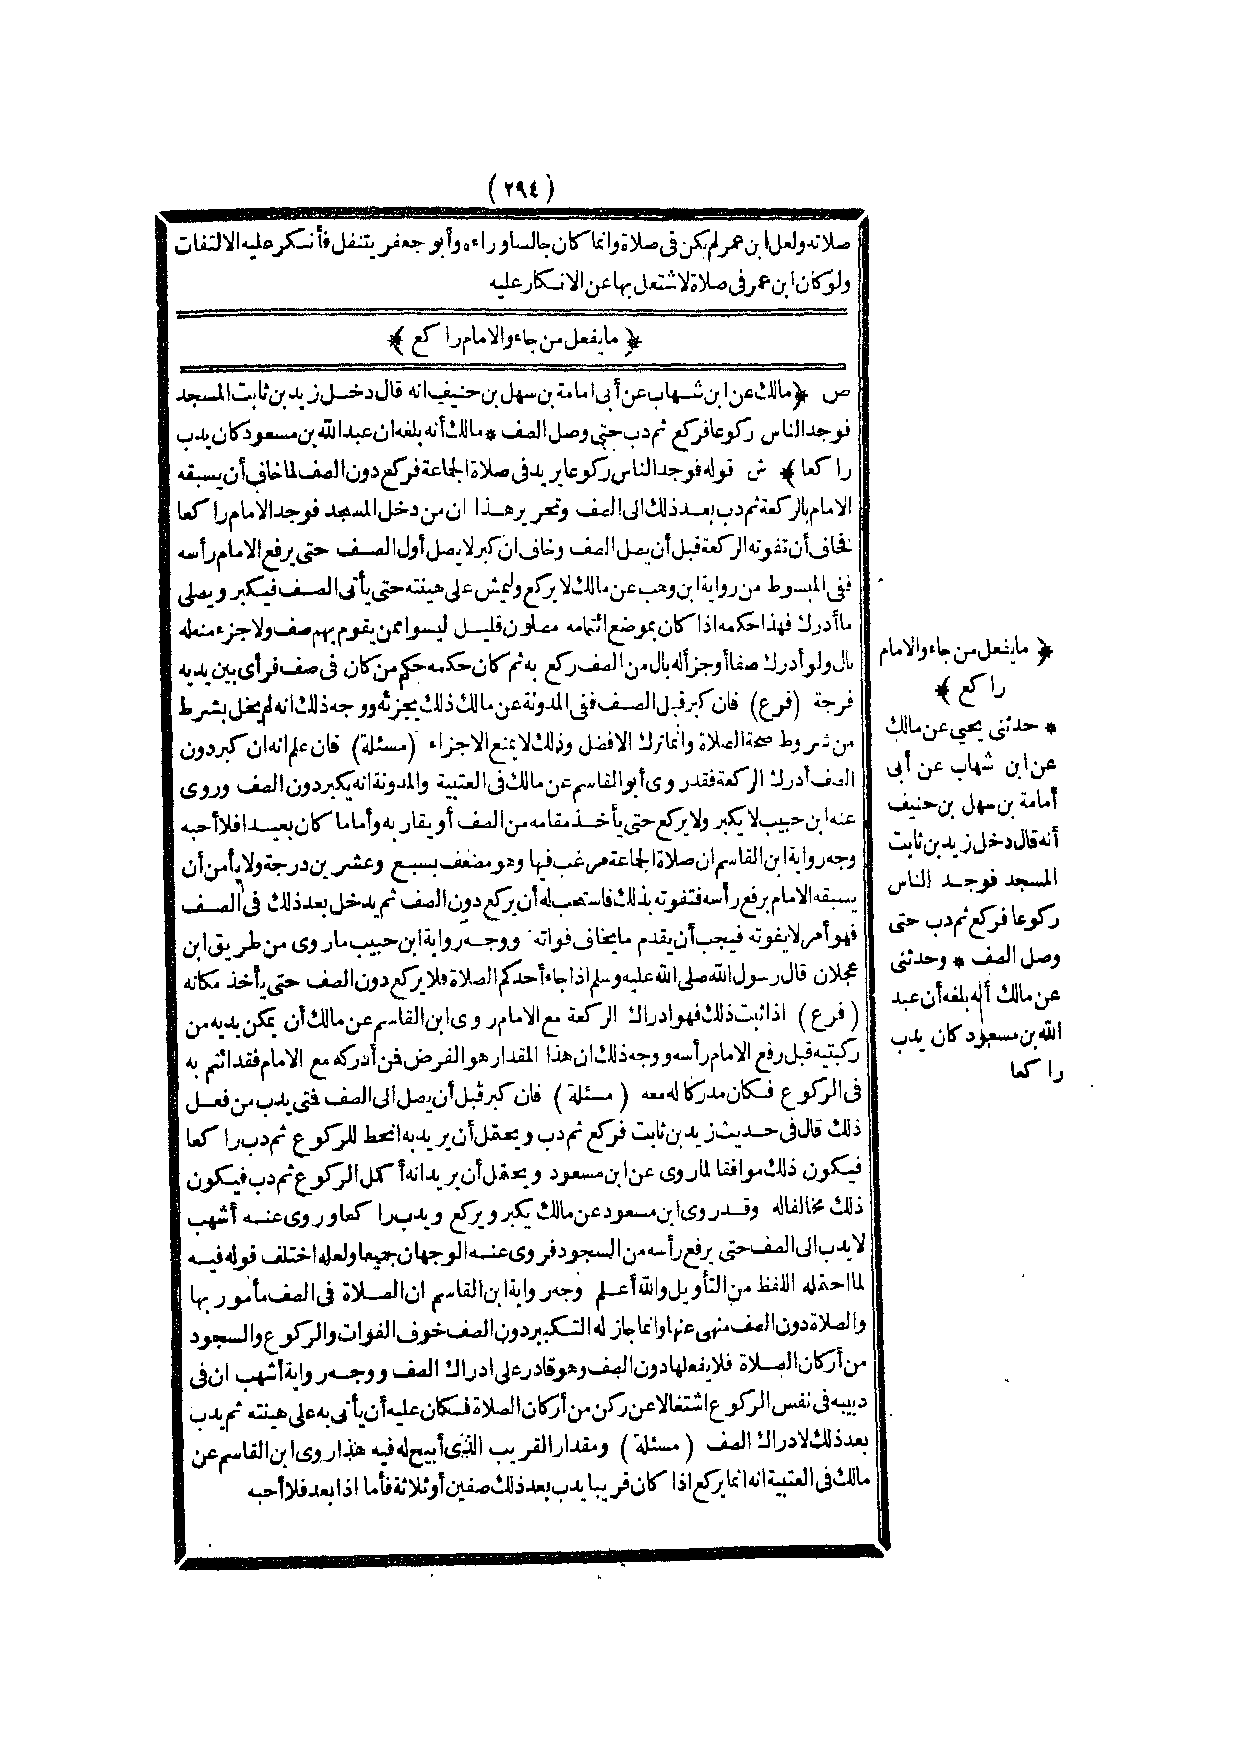 (٢٩٤)
صلاته ولعل ابن عمر لم يكن في صلاة وانما كان جالسا وراءه وأبو جعفر يتنفل فأنكر عليه الالتفات
ولو كان ابن عمر في صلاة لاشتغل بها عن الانكار عليه
﴿ ما يفعل من جاء والامام راكع ﴾
ص ﴿ مالك عن ابن شهاب عن أبي امامة بن سهل بن حنيف انه قال دخل زيد بن ثابت المسجد
فوجد الناس ركوعا فركع ثم دب حتى وصل الصف * مالك أنه بلغه ان عبد الله بن مسعود كان يدب
راكعا ﴾ ش قوله فوجد الناس ركوعا يريد في صلاة الجاعة فركع دون الصف لما خاف أن يسبقه
الامام بالركعة ثم دب بعد ذلك الى الصف وتحرير هذا ان من دخل المسجد فوجد الامام راكعا
فخاف أن تفوته الركعة قبل أن يصل الصف وخاف ان كبر لا يصل أول الصف حتى يرفع الامام رأسه
ففي المبسوط من رواية ابن وهب عن مالك لا يركع وليمش على هينته حتى يأتي الصف فيكبر ويصلى
ما أدرك فهذا حكمه اذا كان بموضع ائتمامه مصلون قليل ليسوا ممن يقوم بهم صف ولا جزء منه له
بال ولو أدرك صفا أو جزأ له بال من الصف ركع به ثم كان حكمه حكم من كان في صف فرأى بين يديه
فرجة (فرع) فان كبر قبل الصف ففي المدونة عن مالك ذلك يجزئه ووجه ذلك انه لم يخل بشرط
من شروط صحة الصلاة وانما ترك الافضل وذلك لا يمنع الاجزاء (مسئلة) فان علم انه ان كبر دون
الصف أدرك الركعة فقد روى أبو القاسم عن مالك في العتبية والمدونة انه يكبر دون الصف وروى
عنه ابن حبيب لا يكبر ولا يركع حتى يأخذ مقامه من الصف أو يقاربه وأما ما كان بعيدا فلا أحبه
وجه رواية ابن القاسم ان صلاة الجاعة مرغب فيها وهو مضعف بسبع وعشرين درجة ولا يأمن أن
يسبقه الامام برفع رأسه فتفوته بذلك فاستحب له أن يركع دون الصف ثم يدخل بعد ذلك في الصف
فهو أمر لا يفوته فيجب أن يقدم ما يخاف فواته ووجه رواية ابن حبيب ما روى من طريق ابن
عجلان قال رسول الله صلى الله عليه وسلم اذا جاء أحدكم الصلاة فلا يركع دون الصف حتى يأخذ مكانه
(فرع) اذا ثبت ذلك فهو ادراك الركعة مع الامام روى ابن القاسم عن مالك أن يمكن يديه من
ركبتيه قبل رفع الامام رأسه ووجه ذلك ان هذا المقدار هو الفرض فمن أدركه مع الامام فقد ائتم به
في الركوع فكان مدركا له معه (مسئلة) فان كبر قبل أن يصل الى الصف فمتى يدب من فعل
ذلك قال في حديث زيد بن ثابت فركع ثم دب ويحتمل أن يريد به انحط للركوع ثم دب راكعا
فيكون ذلك موافقا لما روى عن ابن مسعود ويحتمل أن يريد انه أكمل الركوع ثم دب فيكون
ذلك مخالفا له وقد روى ابن مسعود عن مالك يكبر ويركع ويدب راكعا وروى عنه أشهب
لا يدب الى الصف حتى يرفع رأسه من السجود فروى عنه الوجهان جميعا ولعله اختلف قوله فيه
لما احتمله اللفظ من التأويل والله أعلم وجه رواية ابن القاسم ان الصلاة في الصف مأمور بها
والصلاة دون الصف منهى عنها وانما جاز له التكبير دون الصف خوف الفوات والركوع والسجود
من أركان الصلاة فلا يفعلها دون الصف وهو قادر على ادراك الصف ووجه رواية أشهب ان في
دبيبه في نفس الركوع اشتغالا عن ركن من أركان الصلاة فكان عليه أن يأتي به على هينته ثم يدب
بعد ذلك لادراك الصف (مسئلة) ومقدار القريب الذي أبيح له فيه هذا روى ابن القاسم عن
مالك في العتبية انه انما يركع اذا كان قريبا يدب بعد ذلك صفين أو ثلاثة فأما اذا بعد فلا أحبه
﴿ ما يفعل من جاء والامام
راكع ﴾
* حدثني يحيى عن مالك
عن ابن شهاب عن أبي
أمامة بن سهل بن حنيف
أنه قال دخل زيد بن ثابت
المسجد فوجد الناس
ركوعا فركع ثم دب حتى
وصل الصف * وحدثني
عن مالك أنه بلغه أن عبد
الله بن مسعود كان يدب
راكعا